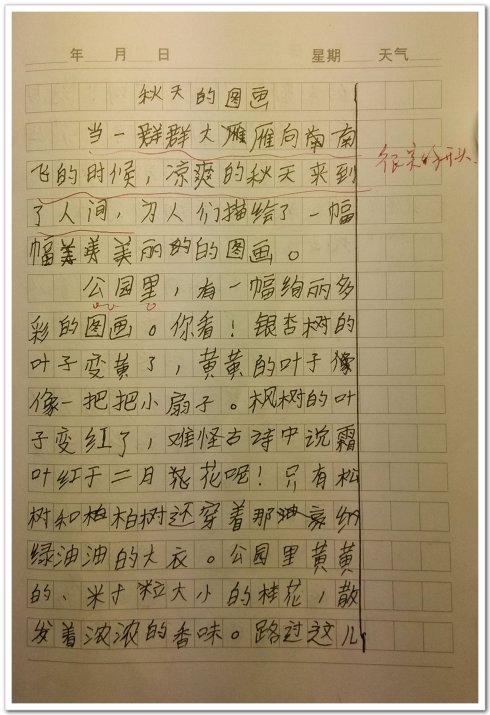 年 月 日 星期 天气
秋天的图画
当一群群大雁雁向南南
飞的时候，凉爽的秋天来到
了人间，为人们描绘了一幅
幅美美美丽的的图画。
公园里，有一幅绚丽多
彩的图画。你看！银杏树的
叶子变黄了，黄黄的叶子像
像一把把小扇子。枫树的叶
子变红了，难怪古诗中说霜
叶红于二月花呢！只有松
树和柏柏树还穿着那
绿油油的大衣。公园里黄黄
的、米粒大小的桂花，散
发着浓浓的香味。路过这儿
很美的开头